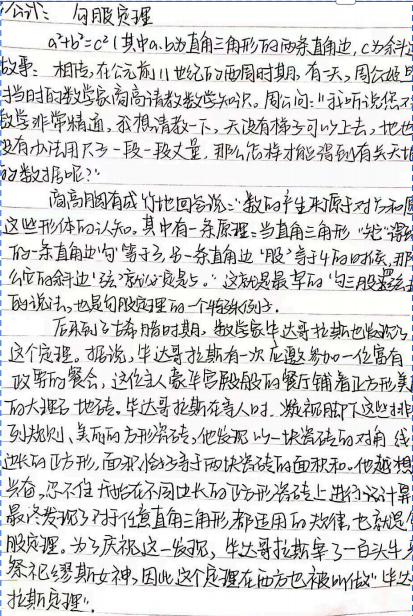 公式: 勾股定理
a²+b²=c²(其中a、b为直角三角形的两条直角边,c为斜边
故事: 相传,在公元前11世纪的西周时期,有一天,周公姬旦
当时的数学家商高请教数学知识。周公问:"我听说您
数学非常精通,我想请教一下,天没有梯子可以上去,地也
没有办法用尺子一段一段丈量,那么怎样才能得到有关天地
的数据呢?"
商高胸有成竹地回答说:"数的产生来源于对方和圆
这些形体的认知。其中有一条原理:当直角三角形'矩'得到
的一条直角边'勾'等于3,另一条直角边'股'等于4的时候,那
么它的斜边'弦'就必定是5。"这就是最早的'勾三股四弦五
的说法,也是勾股定理的一个特殊例子。
后来到了古希腊时期,数学家毕达哥拉斯也发现了
这个定理。据说,毕达哥拉斯有一次应邀参加一位富有
政要的餐会,这位主人豪华宫殿般的餐厅铺着正方形美
的大理石地砖。毕达哥拉斯在等人时,凝视脚下这些排
列规则、美丽的方形瓷砖,他发现以一块瓷砖的对角线
边长的正方形,面积恰好等于两块瓷砖的面积和。他越想
兴奋,忍不住开始在不同边长的正方形瓷砖上进行设计算
最终发现了对于任意直角三角形,都适用的规律,也就是勾
股定理。为了庆祝这一发现,毕达哥拉斯宰了一百头牛
祭祀缪斯女神,因此,这个定理在西方也被叫做"毕达
拉斯定理"。